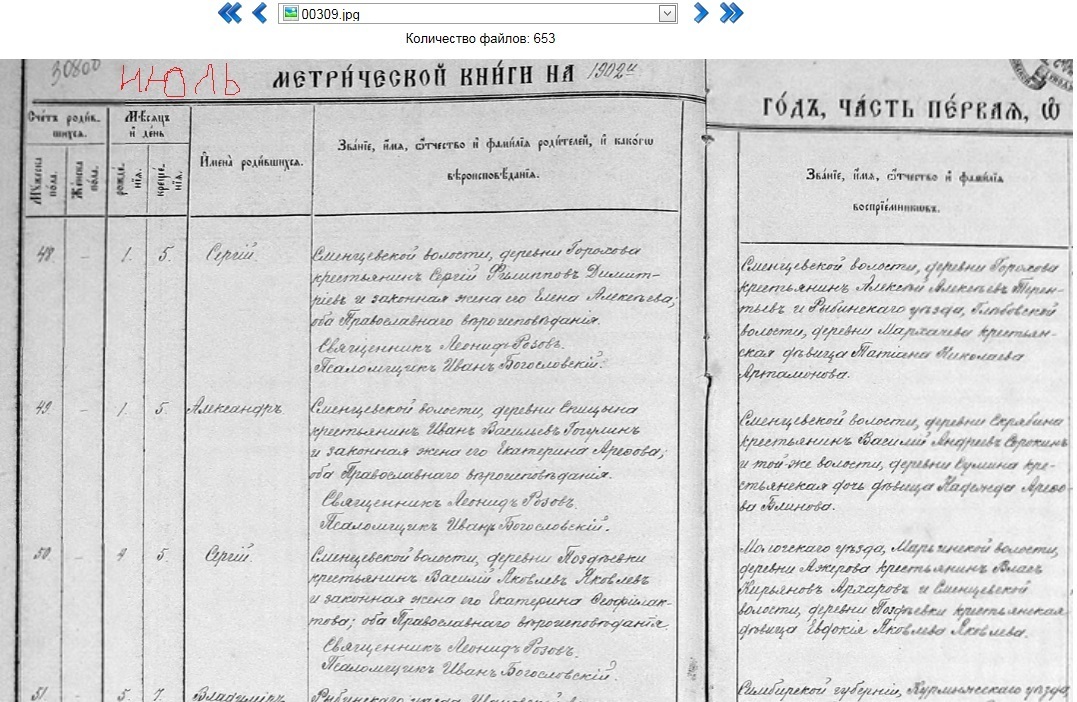 00309.jpg
Количество файлов: 653
30800
ИЮЛЬ
МЕТРИ́ЧЕСКОЙ КНИ́ГИ НА 1902й
ГО́ДЪ, ЧА́СТЬ ПЕ́РВАЯ, Ѽ
Счетъ роди́вшихся.
Мѣсяцъ и день
Мужеска пола.
Женска пола.
рожденія.
крещенія.
Имена̀ роди́вшихся.
Зва́ніе, и́мя, о́тчество и фами́лія роди́телей, и како́гѡ
вѣроисповѣ́данія.
Зва́ніе, и́мя, о́тчество и фами́лія
воспріе́мникѡвъ.
48. - 1. 5. Сергій.
Сменцевской волости, деревни Горохова
крестьянинъ Сергій Филипповъ Димит-
ріевъ и законная жена его Елена Алексѣева;
оба Православнаго вѣроисповѣданія.
Священникъ Леонидъ Розовъ.
Псаломщикъ Иванъ Богословскій.
Сменцевской волости, деревни Горохова
крестьянинъ Алексѣй Алексѣевъ Терен-
тьевъ и Рыбинскаго уѣзда, Глѣбовской
волости, деревни Мархачева крестьян-
ская дѣвица Татіана Николаева
Артамонова.
49. - 1. 5. Александръ
Сменцевской волости, деревни Спицына
крестьянинъ Иванъ Васильевъ Гогулинъ
и законная жена его Екатерина Арефова;
оба Православнаго вѣроисповѣданія.
Священникъ Леонидъ Розовъ.
Псаломщикъ Иванъ Богословскій.
Сменцевской волости, деревни Скрябина
крестьянинъ Василій Андреевъ Сорокинъ
и той же волости, деревни Сумина кре-
стьянская дочь дѣвица Надежда Арефо-
ва Блинова.
50. - 4 5. Сергій.
Сменцевской волости, деревни Поздѣевки
крестьянинъ Василій Яковлевъ Яковлевъ
и законная жена его Екатерина Ѳеофилак-
това; оба Православнаго вѣроисповѣданія.
Священникъ Леонидъ Розовъ.
Псаломщикъ Иванъ Богословскій.
Мологскаго уѣзда, Марьинской волости,
деревни Ажерова крестьянинъ Власъ
Кирьяновъ Архаровъ и Сменцевской
волости, деревни Поздѣевки крестьянская
дѣвица Евдокія Яковлева Яковлева.
51. - 5. 7. Владиміръ
Рыбинскаго уѣзда
Симбирской губерніи, Курмышскаго уѣзда,